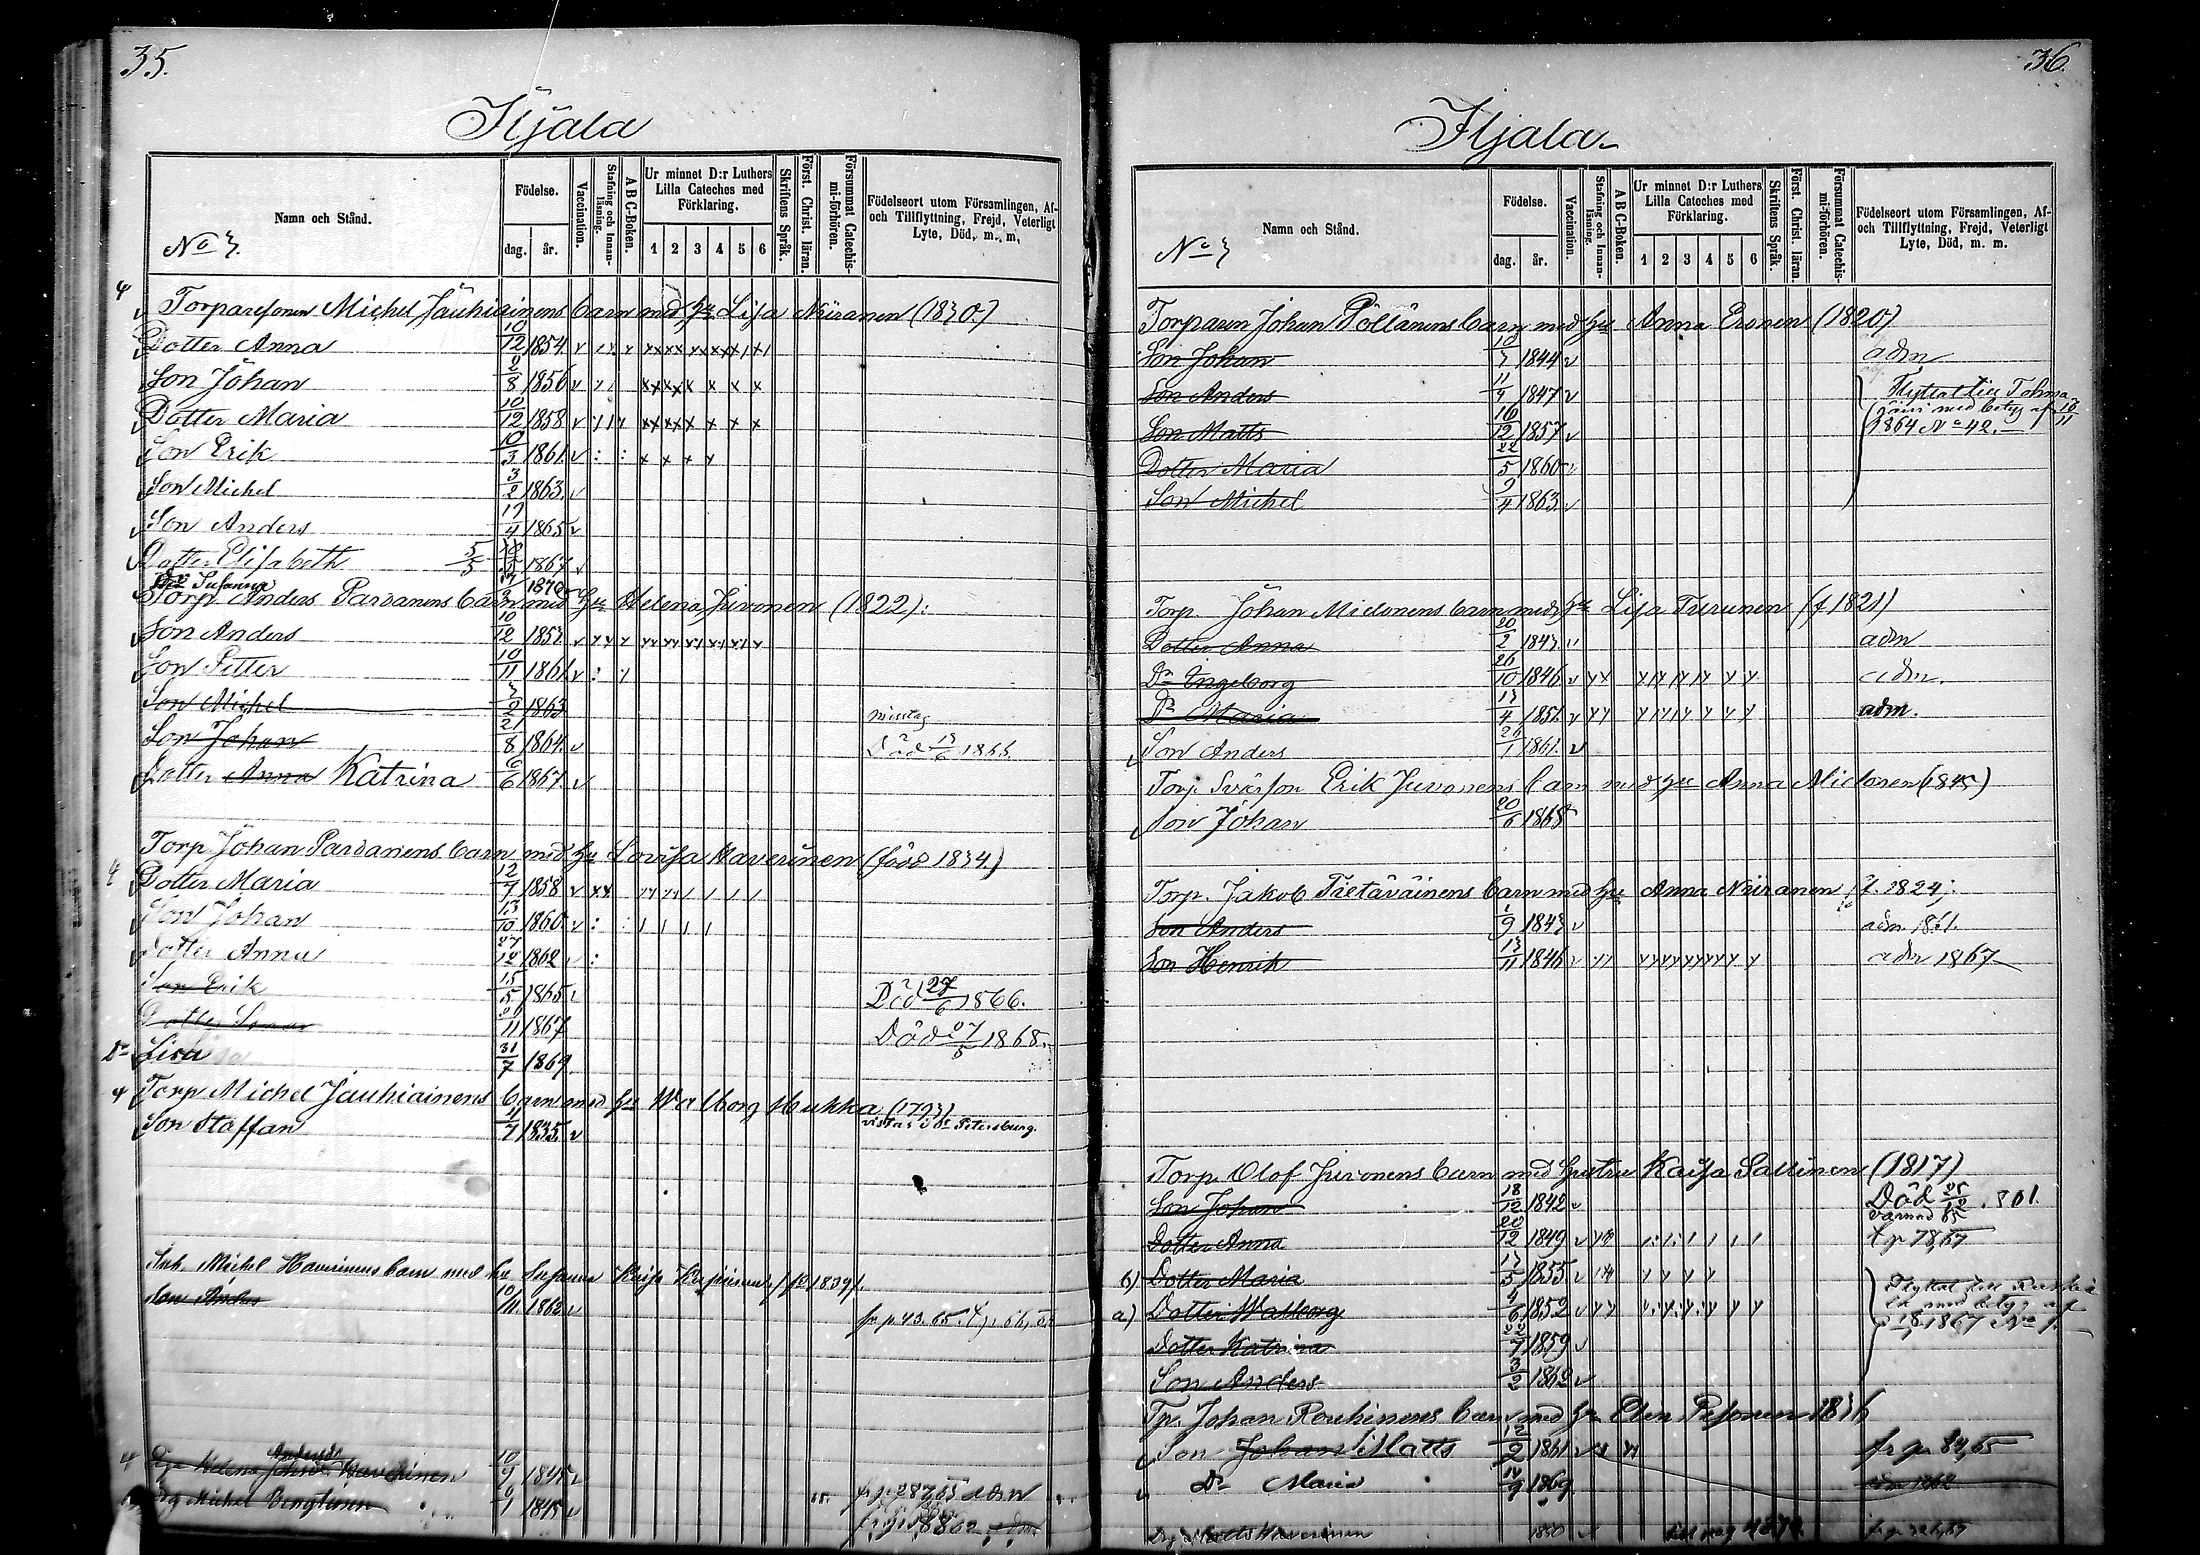 35.
Iljala
Namn och Stånd.
No 3.
Födelse.
dag. år.
Vaccination.
Stafning och Innanläsning.
A B C-Boken.
Ur minnet D:r Luthers Lilla Cateches med Förklaring.
1 2 3 4 5 6
Skriftens Språk.
Först. Christ. läran.
Försummat Catechismi-förhören.
Födelseort utom Församlingen, Af- och Tillflyttning, Frejd, Veterligt Lyte, Död, m. m.
Torparesonen Michel Jäuhiainens barn med hu Lisa Niiranen (1830.)
Dotter Anna 10/12 1854
Son Johan 2/8 1856
Dotter Maria 10/12 1858
Son Erik 10/3 1861
Son Michel 3/2 1863
Son Anders 19/4 1865
Dotter Elisabeth 5/5 1867
Dr Susanna 1870
Torp. Anders Pardanens barn med hu Helena Juvonen (1822):
Son Anders 10/12 1853
Son Petter 10/11 1861
Son Michel 3/2 1863 misstag
Son Johan 21/8 1864 Död 13/6 1866
Dotter Anna Katrina 6/6 1867
Torp Johan Pardanens barn med hu Lovisa Haverinen (född 1834.)
Dotter Maria 12/7 1858
Son Johan 13/10 1860
Dotter Anna 27/12 1862
Son Erik 15/5 1865 Död 27/6 1866.
Dotter 11 1867 Död 27/5 1868.
Dr Lisa 31/7 1869
Torp Michel Jauhiainens barn med hu Walborg Hukka (1793)
Son Staffan 4/7 1835 vistas i St Petersburg.
Inh. Michel Haverinens barn med hu Susanna (f 1839).
Son Anders 10/11 1862 fr p 43. 65.
Helena Andersdr Haverinen 10/9 1845 fr p 287,65 adm
Drg Michel Bengtsson 6/1 1845
36.
Iljala
Namn och Stånd.
No 3
Födelse.
dag. år.
Vaccination.
Stafning och Innanläsning.
A B C-Boken.
Ur minnet D:r Luthers Lilla Cateches med Förklaring.
1 2 3 4 5 6
Skriftens Språk.
Först. Christ. läran.
Försummat Catechismi-förhören.
Födelseort utom Församlingen, Af- och Tillflyttning, Frejd, Veterligt Lyte, Död, m. m.
Torparen Johan Pöllänens barn med hu Anna Eronen (1820)
Son Johan 10/3 1844 adm
Son Anders 11/4 1847 Flyttat till Tohma
Son Matts 16/12 1857 järvi med betyg af 16/11 1864 No 42.
Dotter Maria 22/5 1860
Son Michel 9/4 1863
Torp. Johan Miclonens barn med hu Lisa Turunen (f 1821)
Dotter Anna 20/2 1843 adm
Dr Ingeborg 26/10 1846 adm.
Dr Maria 13/4 1851 adm.
Son Anders 26/1 1861
Torp. Svärson Erik Juvonens barn med hu Anna Miclonen (1843)
Son Johan 20/6 1868
Torp. Jakob Tietäväinens barn med hu Anna Niiranen f. 1824;
Son Anders 1/9 1843 adm. 1861.
Son Henrik 13/11 1846 adm 1867
Torp. Olof Juvonens barn med hustru Kaisa Sallinen (1817)
Son Johan 18/12 1842 Död
Dotter Anna 20/12 1849
b) Dotter Maria 13/5 1855
a) Dotter Walborg 4/6 1852 med betyg af 1867 No 1.
Dotter Katrina 22/7 1859
Son Anders 3/2 1862
Tp. Johan Rouhinens barn med hu Elin Pesonen 1836
Son Johan Matts 12/2 1861 fr p. 84,65
Dr Maria 14/9 1869
adm 1862
Drg Matts Haverinen 1850 fr p. 326,67